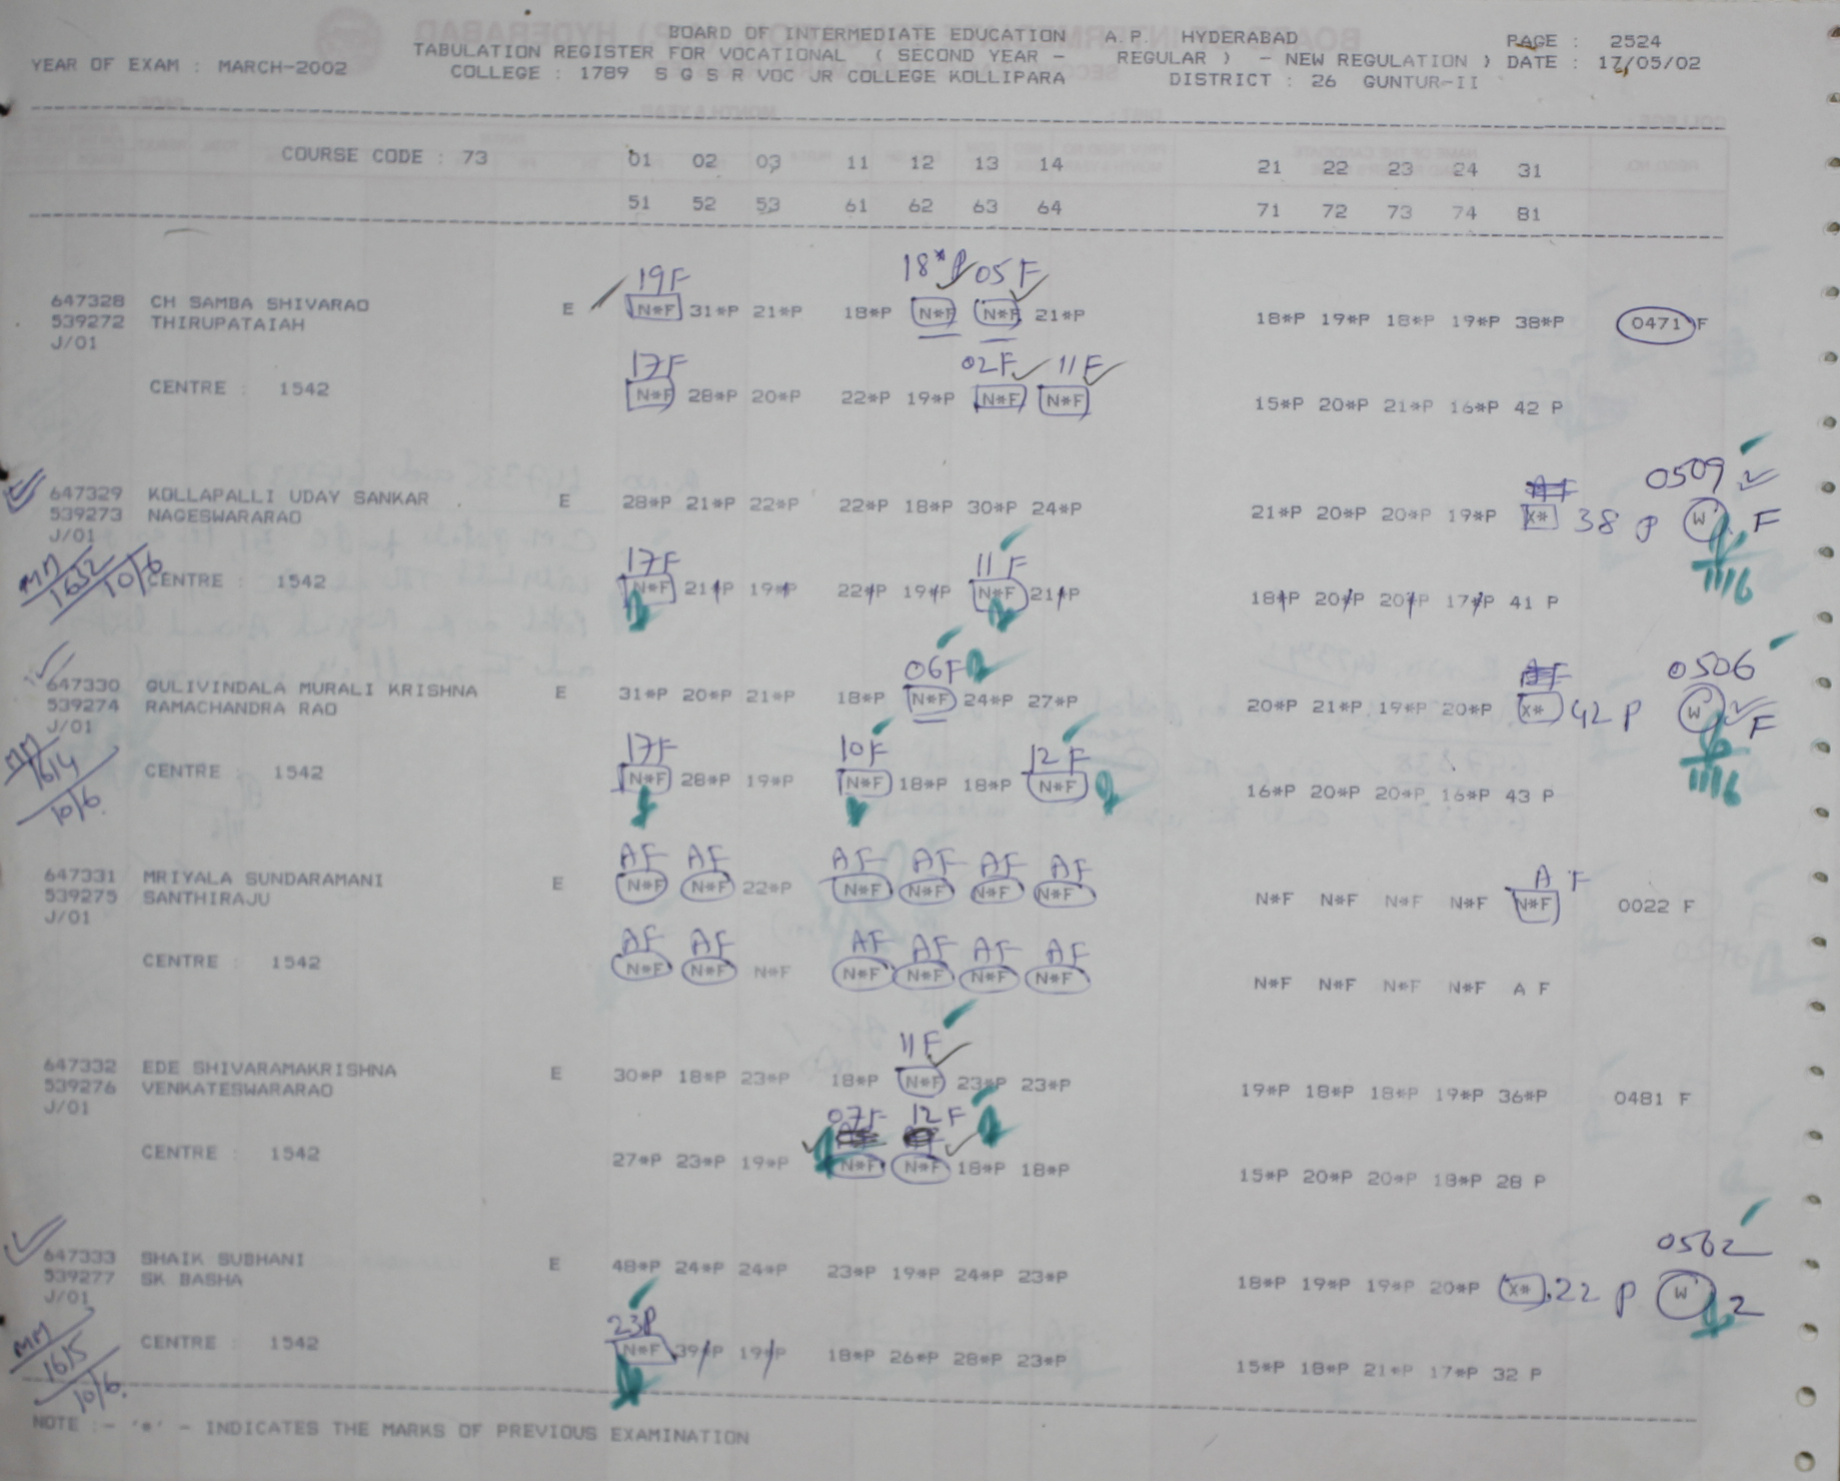 BOARD OF INTERMEDIATE EDUCATION A.P. HYDERABAD PAGE : 2524
TABULATION REGISTER FOR VOCATIONAL ( SECOND YEAR - REGULAR ) - NEW REGULATION ) DATE : 17/05/02
YEAR OF EXAM : MARCH-2002 COLLEGE : 1789 S G S R VOC JR COLLEGE KOLLIPARA DISTRICT : 26 GUNTUR-II
COURSE CODE : 73 01 02 03 11 12 13 14 21 22 23 24 31
51 52 53 61 62 63 64 71 72 73 74 81
19F 18*P 05F
647328 CH SAMBA SHIVARAO E N*F 31*P 21*P 18*P N*F N*F 21*P 18*P 19*P 18*P 19*P 38*P 0471 F
539272 THIRUPATAIAH
J/01
17F 02F 11F
CENTRE : 1542 N*F 28*P 20*P 22*P 19*P N*F N*F 15*P 20*P 21*P 16*P 42 P
0509
647329 KOLLAPALLI UDAY SANKAR E 28*P 21*P 22*P 22*P 18*P 30*P 24*P 21*P 20*P 20*P 19*P X* 38 P W F
539273 NAGESWARARAO
J/01
17F 11F 11/6
MM 1632 10/6
CENTRE : 1542 N*F 21*P 19*P 22*P 19*P N*F 21*P 18*P 20*P 20*P 17*P 41 P
06F 0506
647330 GULIVINDALA MURALI KRISHNA E 31*P 20*P 21*P 18*P N*F 24*P 27*P 20*P 21*P 19*P 20*P X* 42 P W F
539274 RAMACHANDRA RAO
J/01
17F 10F 12F 11/6
MM 1614 10/6
CENTRE : 1542 N*F 28*P 19*P N*F 18*P 18*P N*F 16*P 20*P 20*P 16*P 43 P
AF AF AF AF AF AF A F
647331 MRIYALA SUNDARAMANI E N*F N*F 22*P N*F N*F N*F N*F N*F N*F N*F N*F N*F 0022 F
539275 SANTHIRAJU
J/01
AF AF AF AF AF AF
CENTRE : 1542 N*F N*F N*F N*F N*F N*F N*F N*F N*F N*F N*F A F
11F
647332 EDE SHIVARAMAKRISHNA E 30*P 18*P 23*P 18*P N*F 23*P 23*P 19*P 18*P 18*P 19*P 36*P 0481 F
539276 VENKATESWARARAO
J/01
07F 12F
CENTRE : 1542 27*P 23*P 19*P N*F N*F 18*P 18*P 15*P 20*P 20*P 18*P 28 P
0562
647333 SHAIK SUBHANI E 48*P 24*P 24*P 23*P 19*P 24*P 23*P 18*P 19*P 19*P 20*P X* 22 P W 2
539277 SK BASHA
J/01
23P
MM 1615 10/6
CENTRE : 1542 N*F 39*P 19*P 18*P 26*P 28*P 23*P 15*P 18*P 21*P 17*P 32 P
NOTE :- '*' - INDICATES THE MARKS OF PREVIOUS EXAMINATION